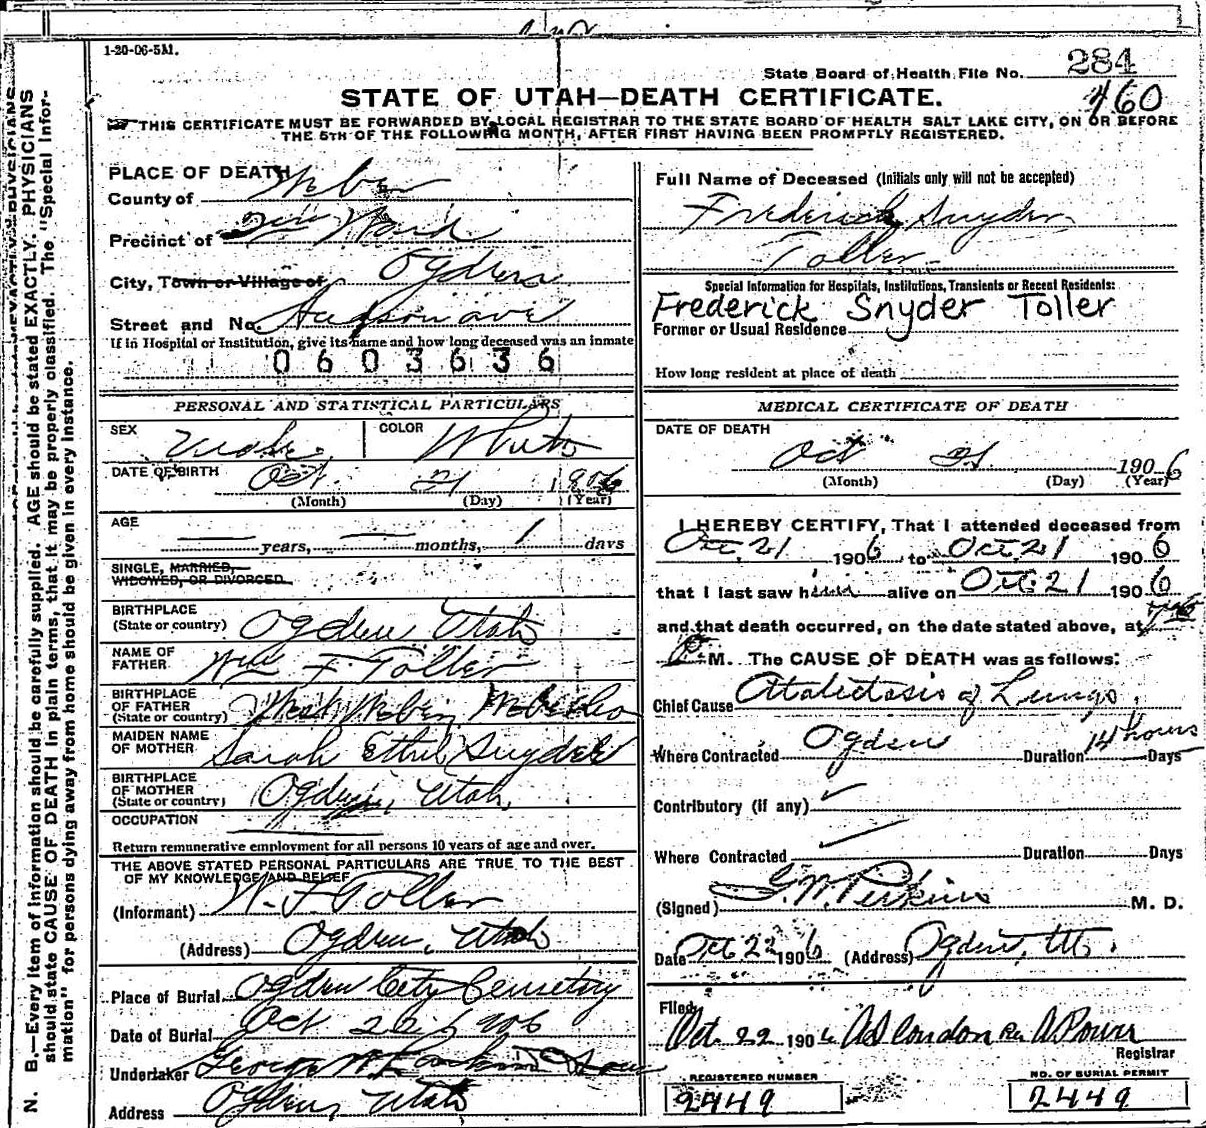 1-20-06-5M.
State Board of Health File No. 284
460
STATE OF UTAH—DEATH CERTIFICATE.
THIS CERTIFICATE MUST BE FORWARDED BY LOCAL REGISTRAR TO THE STATE BOARD OF HEALTH SALT LAKE CITY, ON OR BEFORE
THE 5TH OF THE FOLLOWING MONTH, AFTER FIRST HAVING BEEN PROMPTLY REGISTERED.
N. B.—Every item of information should be carefully supplied. AGE should be stated EXACTLY. PHYSICIANS
should state CAUSE OF DEATH in plain terms, that it may be properly classified. The "Special Infor-
mation" for persons dying away from home should be given in every instance.
PLACE OF DEATH
County of Weber
Precinct of Ward
City, Town or Village of Ogden
Street and No. Hudson ave
If in Hospital or Institution, give its name and how long deceased was an inmate
0603636
PERSONAL AND STATISTICAL PARTICULARS
SEX Male COLOR White
DATE OF BIRTH Oct. 21 1906
(Month) (Day) (Year)
AGE
years, months, 1 days
SINGLE, MARRIED,
WIDOWED, OR DIVORCED
BIRTHPLACE
(State or country) Ogden Utah
NAME OF
FATHER Wm F Toller
BIRTHPLACE
OF FATHER
(State or country) West Weber
MAIDEN NAME
OF MOTHER Sarah Ethel Snyder
BIRTHPLACE
OF MOTHER
(State or country) Ogden, Utah
OCCUPATION
Return remunerative employment for all persons 10 years of age and over.
THE ABOVE STATED PERSONAL PARTICULARS ARE TRUE TO THE BEST
OF MY KNOWLEDGE AND BELIEF
(Informant) W. F Toller
(Address) Ogden, Utah
Place of Burial Ogden City Cemetery
Date of Burial Oct 22 1906
Undertaker George W Larkin & Sons
Address Ogden, Utah
Full Name of Deceased (Initials only will not be accepted)
Frederick Snyder
Toller
Special Information for Hospitals, Institutions, Transients or Recent Residents:
Frederick Snyder Toller
Former or Usual Residence
How long resident at place of death
MEDICAL CERTIFICATE OF DEATH
DATE OF DEATH
Oct 21 1906
(Month) (Day) (Year)
I HEREBY CERTIFY, That I attended deceased from
Oct. 21 1906 to Oct. 21 1906
that I last saw him alive on Oct. 21 1906
and that death occurred, on the date stated above, at
P M. The CAUSE OF DEATH was as follows:
Chief Cause Atalectasis of Lungs
Where Contracted Ogden Duration 14 hours Days
Contributory (if any)
Where Contracted Duration Days
(Signed) G. W. Perkins M. D.
Date Oct 22 1906 (Address) Ogden, Ut.
Filed
Oct. 22 1906 A Power
Registrar
REGISTERED NUMBER
2449
NO. OF BURIAL PERMIT
2449